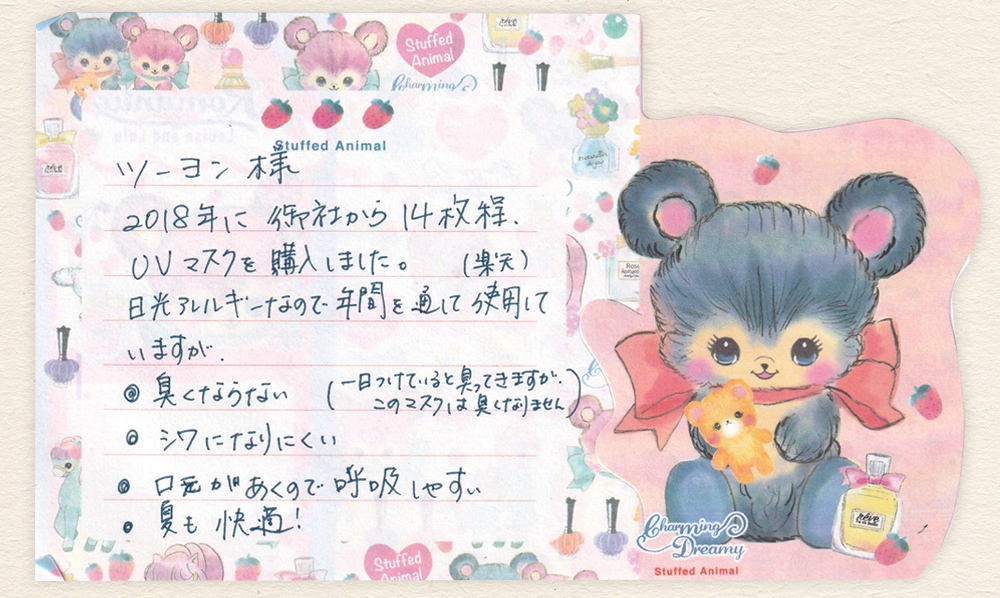 Stuffed
Animal
Charming
Stuffed Animal
ツーヨン 様
2018年に 御社から 14枚程、
UVマスクを 購入しました。 (楽天)
日光アレルギーなので 年間を 通して 使用して
いますが、
◎ 臭くならない (一日つけていると臭ってきますが、
このマスクは 臭くなりません)
◎ シワになりにくい
◎ 口元があくので 呼吸しやすい
• 夏も 快適!
rêve
Charming
Dreamy
Stuffed Animal
Stuffed
Animal